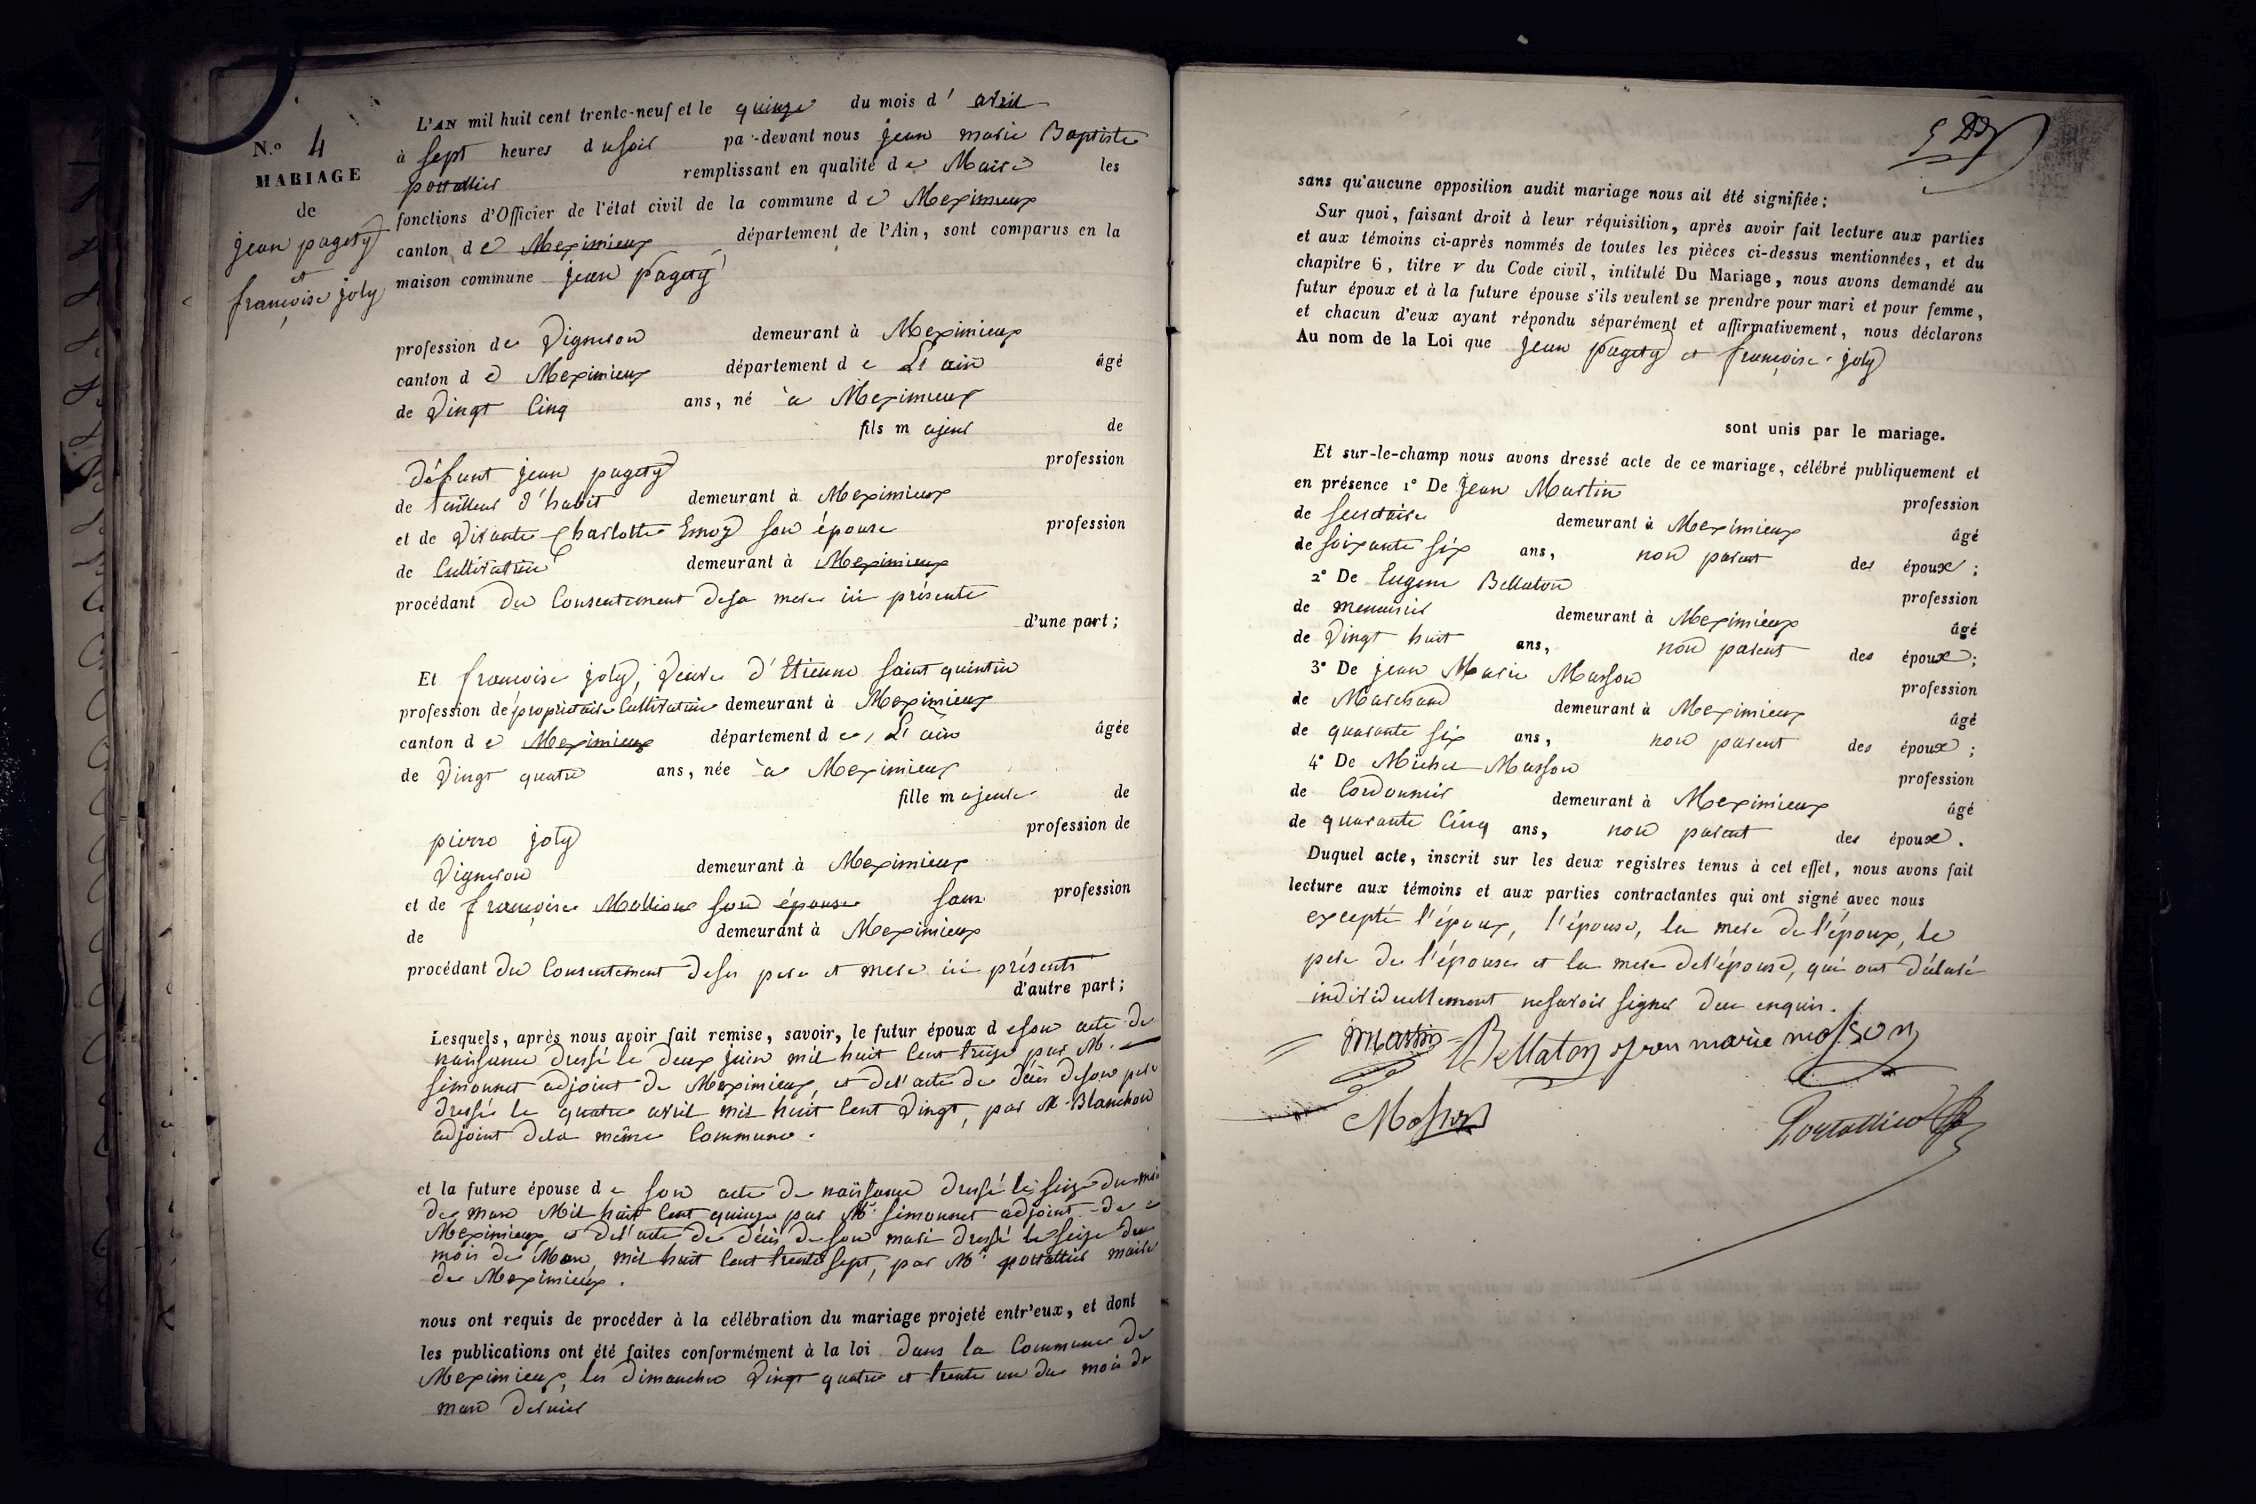 N.º 4
MARIAGE
de
jean pagety
et
françoise joly
L'AN mil huit cent trente-neuf et le quinze du mois d' avril
à sept heures du soir pa -devant nous jean marie Baptiste
portallier remplissant en qualité de Maire les
fonctions d'Officier de l'état civil de la commune de Meximieux
canton de Meximieux département de l'Ain, sont comparus en la
maison commune jean pagety
profession de Vigneron demeurant à Meximieux
canton de Meximieux département de L'ain âgé
de Vingt Cinq ans, né à Meximieux
fils majeur de
Défunt jean pagety profession
de tailleur d'habit demeurant à Meximieux
et de Vivante Charlotte son épouse profession
de Cultivatrice demeurant à Meximieux
procédant du Consentement de sa mere ici présente
d'une part;
Et françoise joly, Veuve d'Etienne Saint quintin
profession de propriétaire Cultivatrice demeurant à Meximieux
canton de Meximieux département de L'ain âgée
de Vingt quatre ans, née à Meximieux
fille majeure de
pierre joly profession de
Vigneron demeurant à Meximieux
et de françoise son épouse sans profession
de demeurant à Meximieux
procédant du Consentement de ses pere et mere ici présents
d'autre part;
Lesquels, après nous avoir fait remise, savoir, le futur époux de son acte de
naissance dressé le deux juin mil huit Cent treize par M.
simonnet adjoint de Meximieux, et de l'acte de décès de son pere
dressé le quatre avril mil huit Cent Vingt, par M. Blanchon
adjoint de la même Commune.
et la future épouse de son acte de naissance dressé le seize du mois
de mars Mil huit Cent quinze par Mr. simonnet adjoint de
Meximieux et de l'acte de décès de son mari dressé le seize du
mois de Mars, mil huit Cent trente sept, par Mr. portallier maire
de Meximieux.
nous ont requis de procéder à la célébration du mariage projeté entr'eux, et dont
les publications ont été faites conformément à la loi dans la Commune de
Meximieux, les dimanches Vingt quatre et trente un du mois de
mars dernier
sans qu'aucune opposition audit mariage nous ait été signifiée;
Sur quoi, faisant droit à leur réquisition, après avoir fait lecture aux parties
et aux témoins ci-après nommés de toutes les pièces ci-dessus mentionnées, et du
chapitre 6, titre v du Code civil, intitulé Du Mariage, nous avons demandé au
futur époux et à la future épouse s'ils veulent se prendre pour mari et pour femme,
et chacun d'eux ayant répondu séparément et affirmativement, nous déclarons
Au nom de la Loi que jean pagety et françoise joly
sont unis par le mariage.
Et sur-le-champ nous avons dressé acte de ce mariage, célébré publiquement et
en présence 1º De Jean Martin profession
de secretaire demeurant à Meximieux âgé
de soixante six ans, non parent des époux;
2º De Eugene Bellaton profession
de menuisier demeurant à Meximieux âgé
de Vingt huit ans, non parent des époux;
3º De jean Marie Masson profession
de Marchand demeurant à Meximieux âgé
de quarante six ans, non parent des époux;
4º De Michel Masson profession
de Cordonnier demeurant à Meximieux âgé
de quarante Cinq ans, non parent des époux.
Duquel acte, inscrit sur les deux registres tenus à cet effet, nous avons fait
lecture aux témoins et aux parties contractantes qui ont signé avec nous
excepté l'époux, l'épouse, la mere de l'époux, le
pere de l'épouse et la mere de l'épouse, qui ont déclaré
individuellement ne savoir signer de ce enquis.
jmartin Bellaton jean marie masson
Masson Portallier